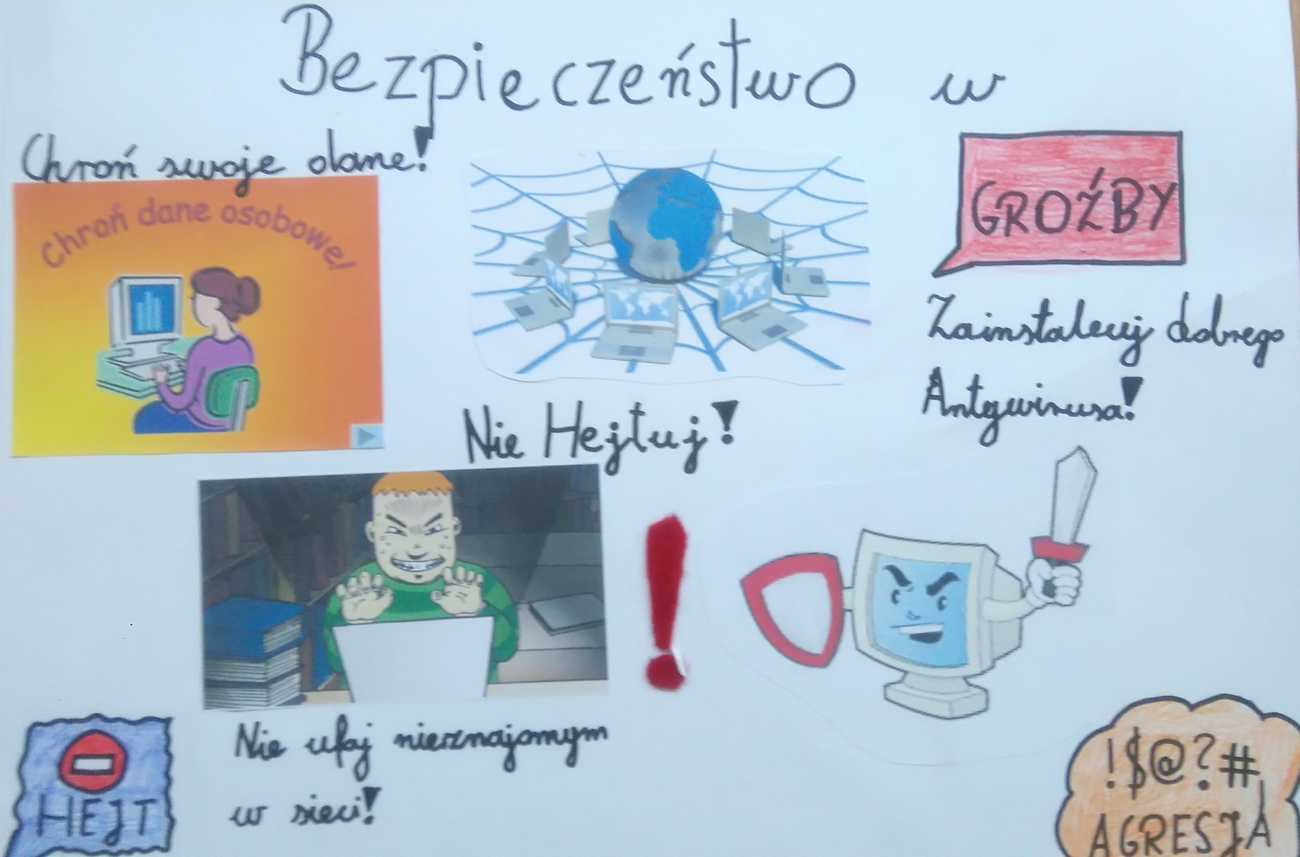 Bezpieczeństwo w
Chroń swoje dane!
Chroń dane osobowe!
GROŹBY
Zainstaluj dobrego
Antywirusa!
Nie Hejtuj!
!
Nie ufaj nieznajomym
w sieci!
HEJT
!$@?#
AGRESJA